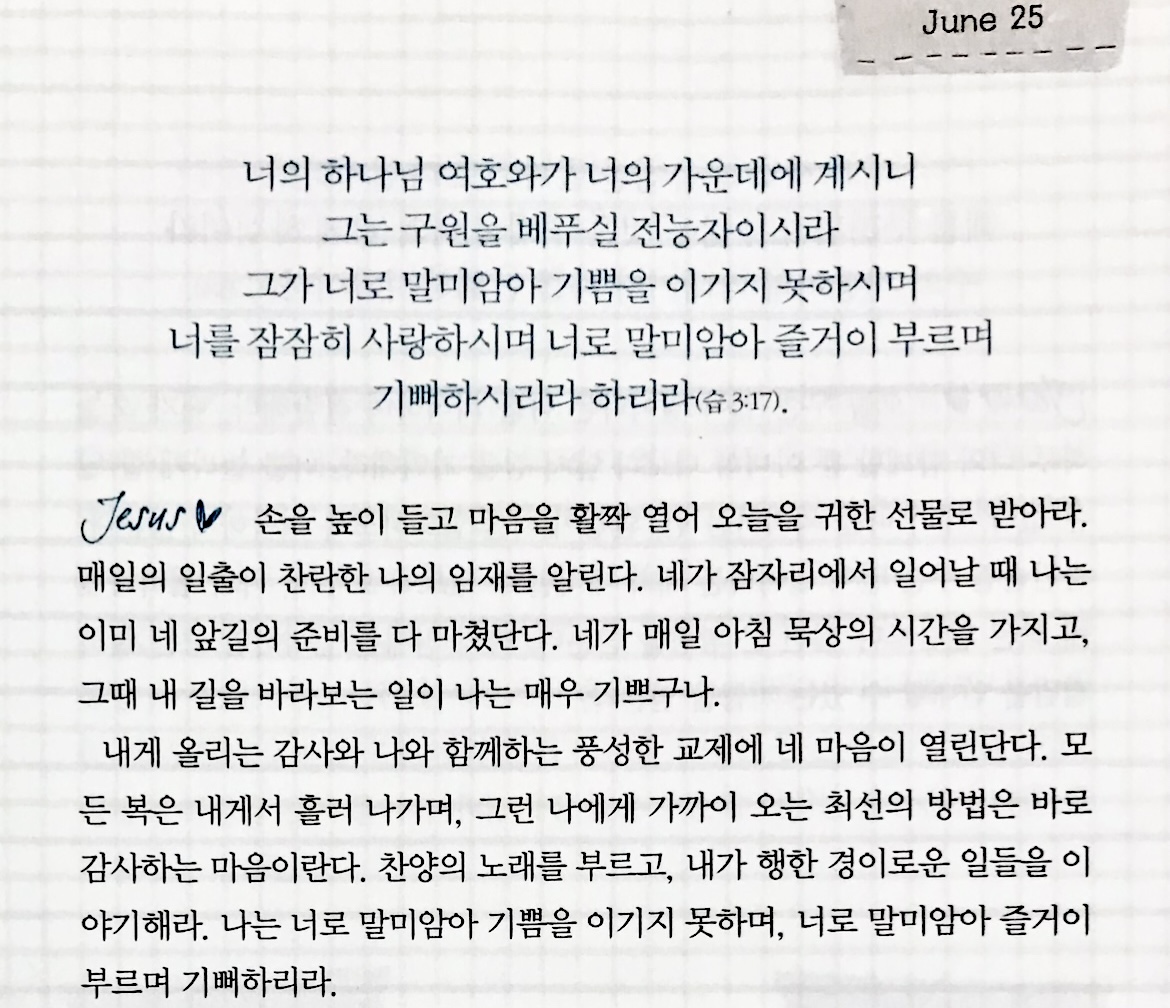 June 25
너의 하나님 여호와가 너의 가운데에 계시니
그는 구원을 베푸실 전능자이시라
그가 너로 말미암아 기쁨을 이기지 못하시며
너를 잠잠히 사랑하시며 너로 말미암아 즐거이 부르며
기뻐하시리라 하리라(습 3:17).
Jesus 손을 높이 들고 마음을 활짝 열어 오늘을 귀한 선물로 받아라.
매일의 일출이 찬란한 나의 임재를 알린다. 네가 잠자리에서 일어날 때 나는
이미 네 앞길의 준비를 다 마쳤단다. 네가 매일 아침 묵상의 시간을 가지고,
그때 내 길을 바라보는 일이 나는 매우 기쁘구나.
내게 올리는 감사와 나와 함께하는 풍성한 교제에 네 마음이 열린단다. 모
든 복은 내게서 흘러 나가며, 그런 나에게 가까이 오는 최선의 방법은 바로
감사하는 마음이란다. 찬양의 노래를 부르고, 내가 행한 경이로운 일들을 이
야기해라. 나는 너로 말미암아 기쁨을 이기지 못하며, 너로 말미암아 즐거이
부르며 기뻐하리라.